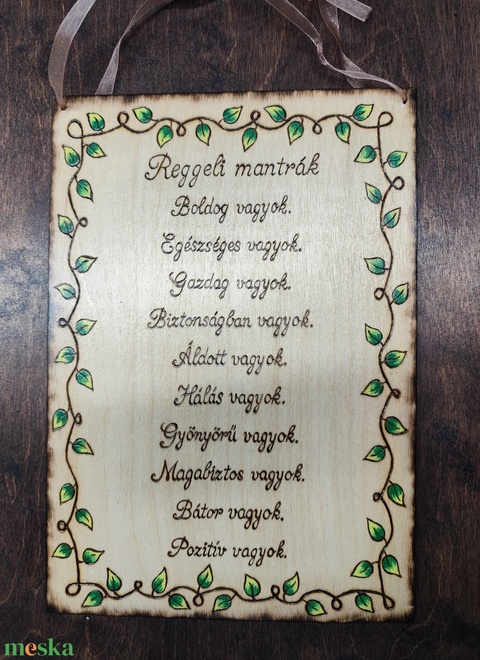 Reggeli mantrák
Boldog vagyok.
Egészséges vagyok.
Gazdag vagyok.
Biztonságban vagyok.
Áldott vagyok.
Hálás vagyok.
Gyönyörű vagyok.
Magabiztos vagyok.
Bátor vagyok.
Pozitív vagyok.
meska